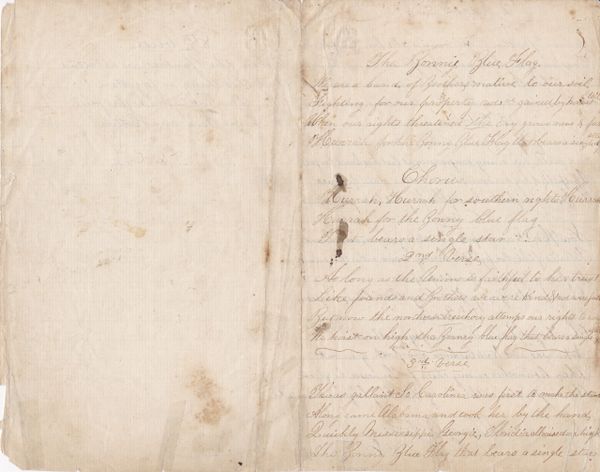 The Bonnie Blue Flag.
We are a band of Brothers, native to our soil
Fighting for our property we gained by honest
When our rights threatened the cry rose &
Hurrah for the Bonne Blue Flag that bears a single
Chorus
Hurrah, Hurrah for southern rights Hurrah
Hurrah for the Bonny blue flag
That bears a single star
2nd Verse
As long as the Union is faithful to her trust
Like friends and Brothers we were kind & we were just
But now the northern treachery attempts our rights to
We hoist on high the Bonney blue flag that bears a single
3rd Verse
Twas gallant So Carolina was first to make the stand
Along came Alabama and took her by the hand,
Quickly Mississippi, Georgia, Florida all raised on high
The Bonne Blue Flag that bears a single star